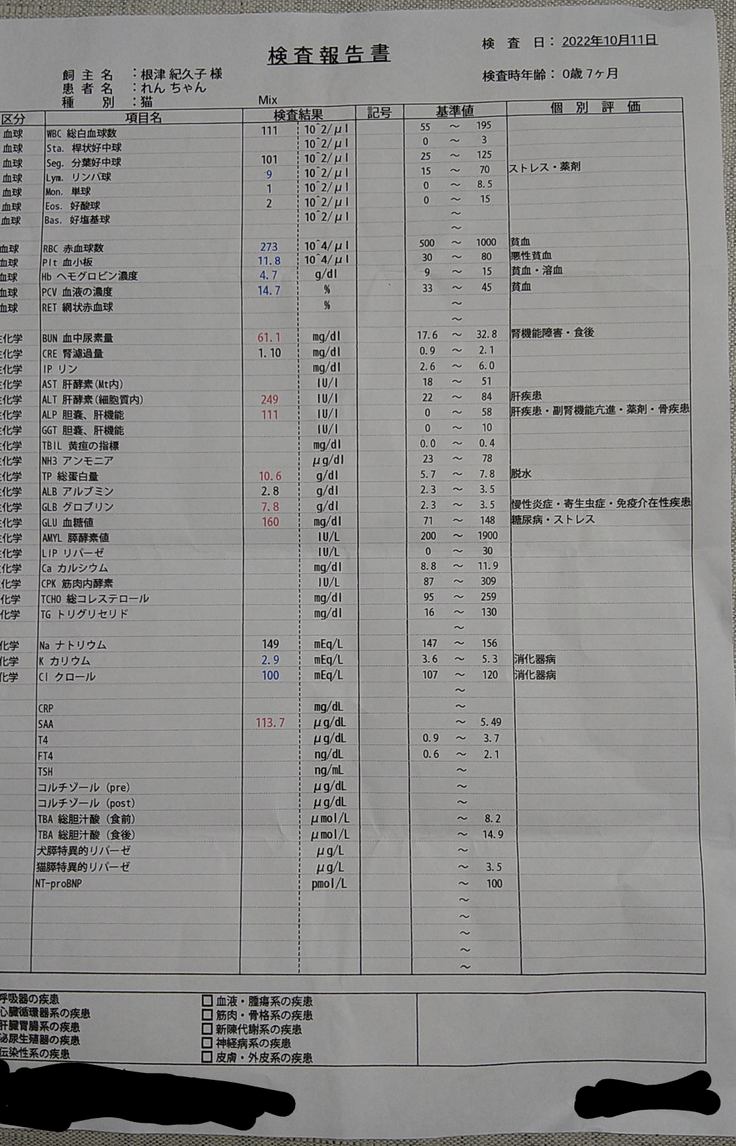 検査報告書
検 査 日： 2022年10月11日
飼 主 名 ：根津 紀久子 様
検査時年齢： 0歳 7ヶ月
患 者 名 ：れん ちゃん
種 別 ：猫 Mix
区分 項目名 検査結果 記号 基準値 個 別 評 価
血球 WBC 総白血球数 111 10^2/μl 55 ～ 195
血球 Sta. 桿状好中球 10^2/μl 0 ～ 3
血球 Seg. 分葉好中球 101 10^2/μl 25 ～ 125
血球 Lym. リンパ球 9 10^2/μl 15 ～ 70 ストレス・薬剤
血球 Mon. 単球 1 10^2/μl 0 ～ 8.5
血球 Eos. 好酸球 2 10^2/μl 0 ～ 15
血球 Bas. 好塩基球 10^2/μl ～
～
血球 RBC 赤血球数 273 10^4/μl 500 ～ 1000 貧血
血球 Plt 血小板 11.8 10^4/μl 30 ～ 80 悪性貧血
血球 Hb ヘモグロビン濃度 4.7 g/dl 9 ～ 15 貧血・溶血
血球 PCV 血液の濃度 14.7 % 33 ～ 45 貧血
血球 RET 網状赤血球 % ～
～
化学 BUN 血中尿素量 61.1 mg/dl 17.6 ～ 32.8 腎機能障害・食後
化学 CRE 腎濾過量 1.10 mg/dl 0.9 ～ 2.1
化学 IP リン mg/dl 2.6 ～ 6.0
化学 AST 肝酵素(Mt内) IU/l 18 ～ 51
化学 ALT 肝酵素(細胞質内) 249 IU/l 22 ～ 84 肝疾患
化学 ALP 胆嚢、肝機能 111 IU/l 0 ～ 58 肝疾患・副腎機能亢進・薬剤・骨疾患
化学 GGT 胆嚢、肝機能 IU/l 0 ～ 10
化学 TBIL 黄疸の指標 mg/dl 0.0 ～ 0.4
化学 NH3 アンモニア μg/dl 23 ～ 78
化学 TP 総蛋白量 10.6 g/dl 5.7 ～ 7.8 脱水
化学 ALB アルブミン 2.8 g/dl 2.3 ～ 3.5
化学 GLB グロブリン 7.8 g/dl 2.3 ～ 3.5 慢性炎症・寄生虫症・免疫介在性疾患
化学 GLU 血糖値 160 mg/dl 71 ～ 148 糖尿病・ストレス
化学 AMYL 膵酵素値 IU/L 200 ～ 1900
化学 LIP リパーゼ IU/L 0 ～ 30
化学 Ca カルシウム mg/dl 8.8 ～ 11.9
化学 CPK 筋肉内酵素 IU/L 87 ～ 309
化学 TCHO 総コレステロール mg/dl 95 ～ 259
化学 TG トリグリセリド mg/dl 16 ～ 130
～
化学 Na ナトリウム 149 mEq/L 147 ～ 156
化学 K カリウム 2.9 mEq/L 3.6 ～ 5.3 消化器病
化学 Cl クロール 100 mEq/L 107 ～ 120 消化器病
～
CRP mg/dL ～
SAA 113.7 μg/dL ～ 5.49
T4 μg/dL 0.9 ～ 3.7
FT4 ng/dL 0.6 ～ 2.1
TSH ng/mL ～
コルチゾール (pre) μg/dL ～
コルチゾール (post) μg/dL ～
TBA 総胆汁酸 (食前) μmol/L ～ 8.2
TBA 総胆汁酸 (食後) μmol/L ～ 14.9
犬膵特異的リパーゼ μg/L ～
猫膵特異的リパーゼ μg/L ～ 3.5
NT-proBNP pmol/L ～ 100
～
～
～
～
～
呼吸器の疾患 □ 血液・腫瘍系の疾患
心臓循環器系の疾患 □ 筋肉・骨格系の疾患
肝臓胃腸系の疾患 □ 新陳代謝系の疾患
泌尿生殖器の疾患 □ 神経病系の疾患
伝染性系の疾患 □ 皮膚・外皮系の疾患